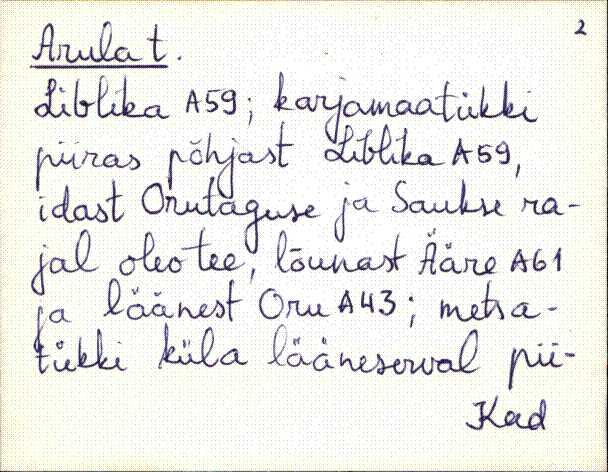 2
Arula t.
Liblika A59; karjamaatükki
piiras põhjast Liblika A59,
idast Orutaguse ja Saukse ra-
jal olev tee, lõunast Ääre A61
ja läänest Oru A43; metsa-
tükki küla lääneserval pii-
Kad